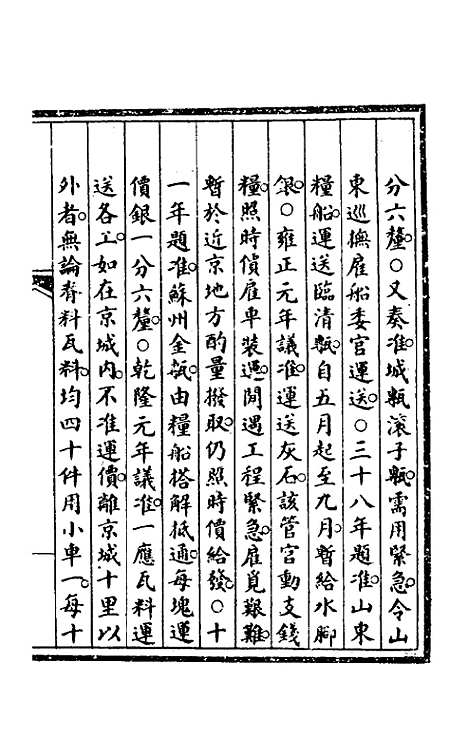 分六釐。○又奏准城甎滾子甎需用緊急。令山
東巡撫雇船委官運送。○三十八年題准。山東
糧船運送臨清甎。自五月起至九月。暫給水腳
銀。○雍正元年議准。運送灰石。該管官動支錢
糧。照時價雇車裝運。閒遇工程緊急。雇覓艱難。
暫於近京地方酌量撥取。仍照時價給發。○十
一年題准。蘇州金甎。由糧船搭解抵通。每塊運
價銀一分六釐。○乾隆元年議准。一應瓦料運
送各工。如在京城內。不准運價。離京城十里以
外者。無論脊料瓦料。均四十件用小車一。每十